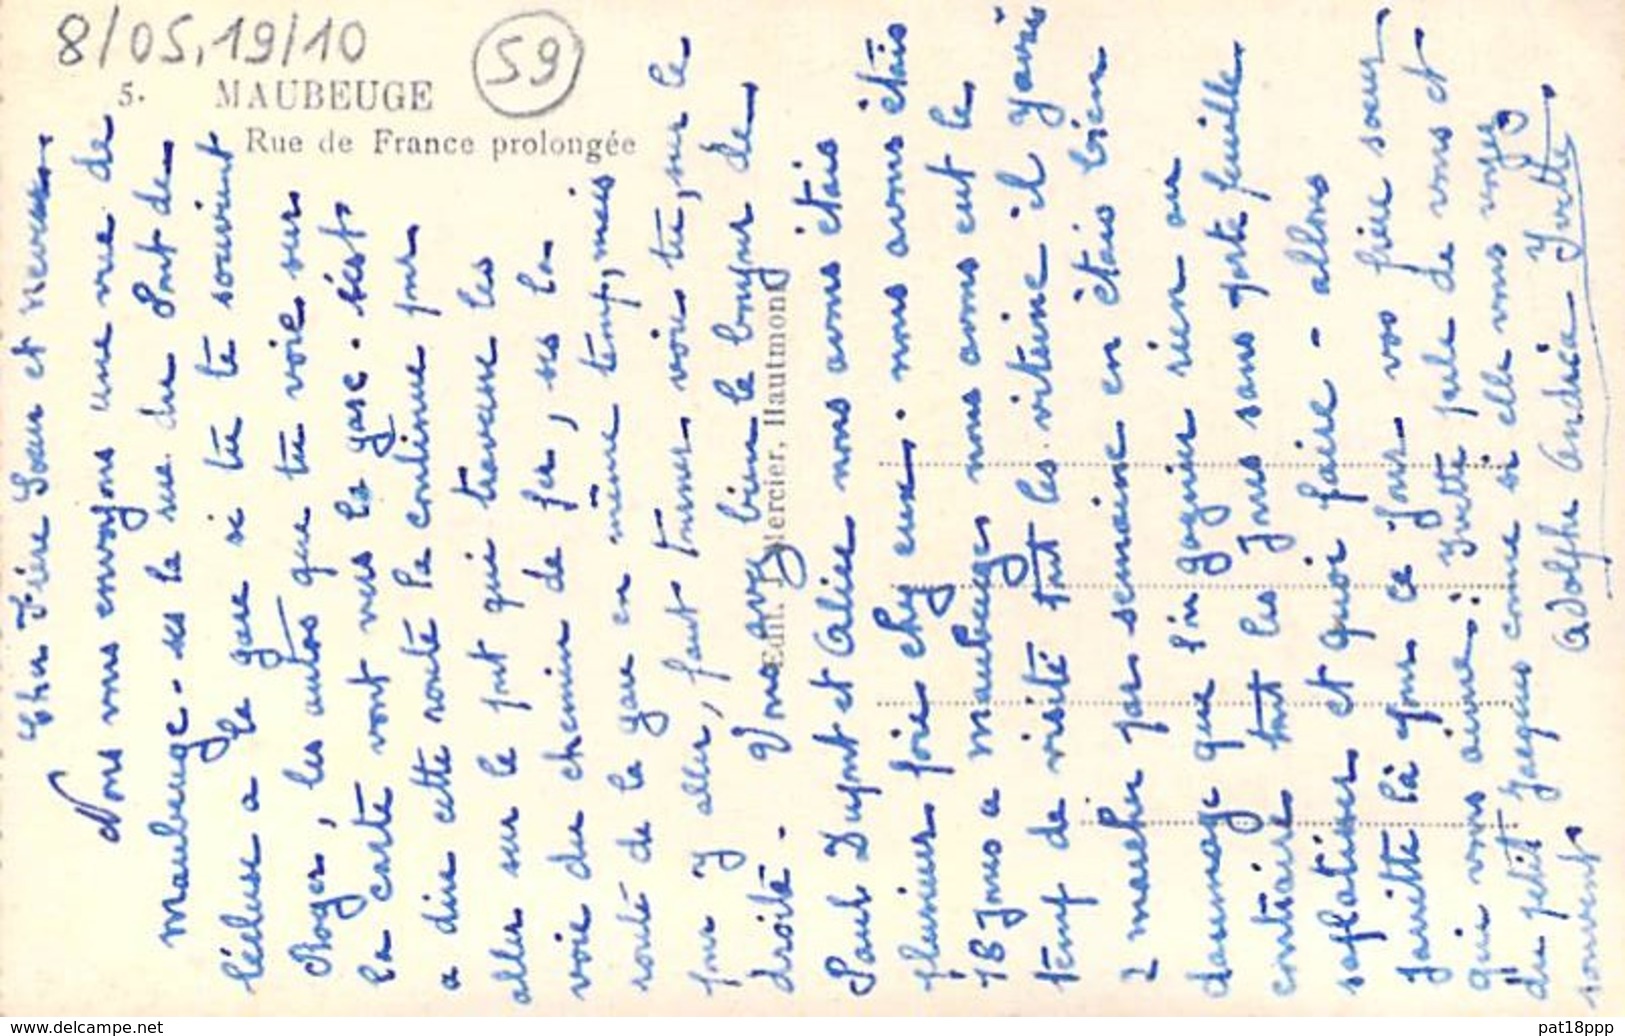 8/05,19/10
59
5. MAUBEUGE
Rue de France prolongée
Edit. Mercier, Hautmont
Cher Frère Soeur et Neveu
Nous vous envoyons une vue de
Maubeuge - ses la rue du Pont de
l'écluse a la gare si tu té souvient
Roger, les autos que tu voie sur
la carte vont vers la gare. sést
a dire cette routé la continue pour
aller sur le pont qui traverse les
voie du chemin de fer, ses la
routé de la gare en même temp, mais
pour y aller, faut tourner voie tu, sur le
droité - Vous avez bien le bonjour de
Paul Dupont et Alise nous avons étais
plusieurs foie chez eux. nous avons étais
18 Jours a Maubeuge nous avons eut le
temp de visité tout les vitrine il y avais
2 marcher par semaine en étais bien
daumage que l'on gagnier rien au
contraire tout les Jours sans porte feuille
saplatisser et quoi faire - allons
quitte là pour ce Jour vos frère soeur
qui vous aime. Yvette parle de vous et
du petit Jacques come si elle vous voyez
souvent. Adolphe Andréa Yvette
pat18ppp
www.delcampe.net